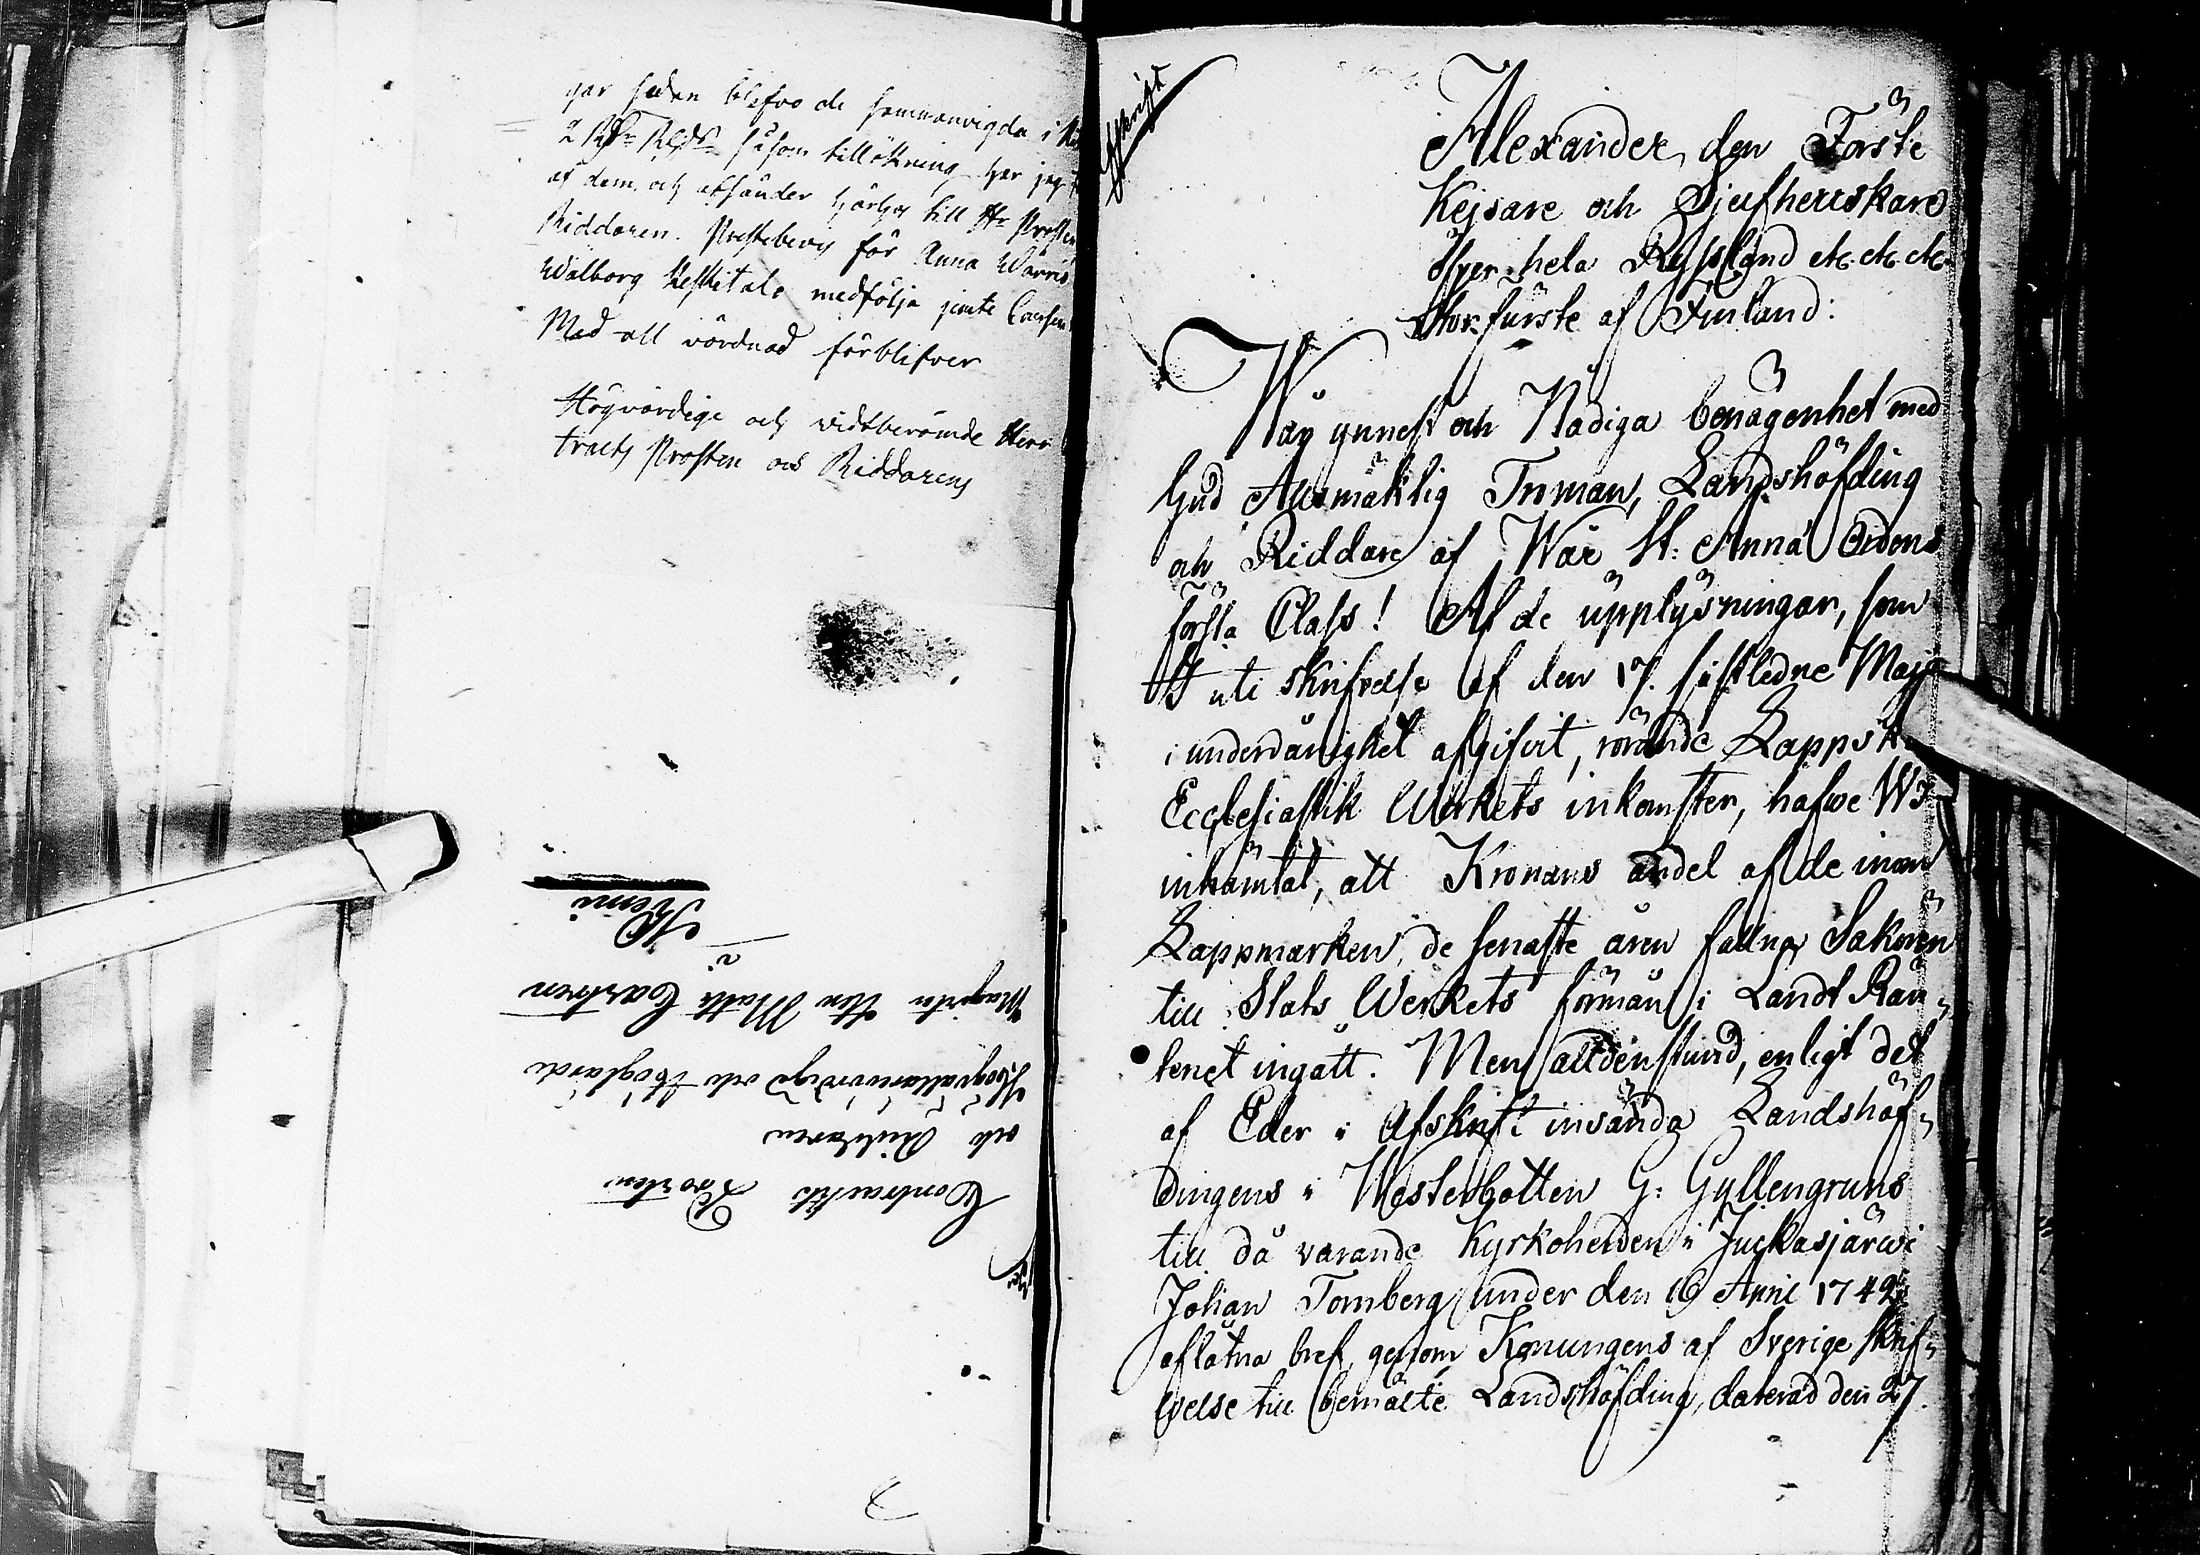 gar sedan blefvo de sammanvigda i
2 Rdr Rgds såsom tillökning har jag
af dem och afsänder härhos till Hr Prosten
Riddaren. Prestebevis för Anna
Walborg Keskitalo medfölja jemte
Med all vördnad förblifver
Högvördige och vidtberömde Herr
tracts Prosten och Riddarens
Contracts Prosten
och Riddaren
Högvällärevördige och Höglärde
Magister Herr Matts Castren
i
Kemi
Afskrift
Alexander den Förste
Kejsare och Sjelfherrskare
öfver hela Ryssland etc. etc. etc.
Stor-furste af Finland:
Wår ynnest och Nådiga benägenhet med
Gud Allsmäktig Troman, Landshöfding
och Riddare af Wår St: Anna Ordens
första Class! Af de upplysningar, som
I uti skrifvelse af den 17. sistledne Maji
i underdånighet afgifvit, rörande Lappska
Ecclesiastik Werkets inkomster, hafve Wi
inhämtat, att Kronans andel af de inom
Lappmarken de senaste åren fallna Sakören
till Stats Werkets förmån i Landt Rän-
teriet ingått. Men alldenstund, enligt det
af Eder i Afskrift insända Landshöf-
dingens i Westerbotten G: Gyllengruns
till då varande Kyrkoherden i Juckasjärwi
Johan Tornberg under den 16 Anni 1742
aflåtna bref, genom Konungens af Sverige skrif-
velse till bemälte Landshöfding, daterad den 27.